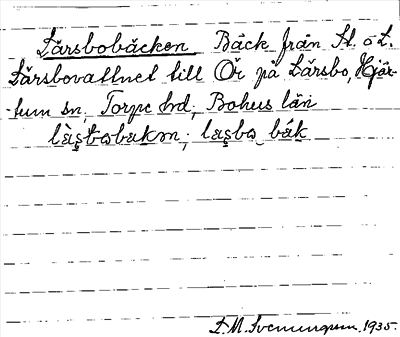 Lärsbobäcken Bäck från St. o L.
Lärsbovattnet till Ör på Lärsbo, Hjär-
tum sn, Torpe hd, Bohus län
làʂbobakən; laʂbo bák
D. M. Svenungsson. 1935.